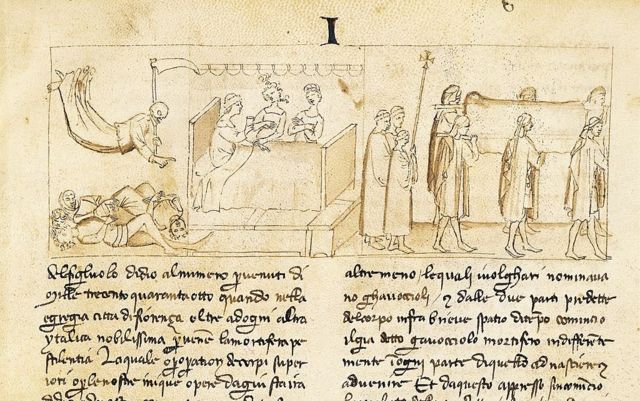 I
delfigluolo didio alnumero pervenuti di
mille trecento quaranta otto quando nella
egregia citta di fiorenza oltre adogni altra
ytalica nobilissima pervene lamortifera pe
stilentia Laquale operoperation decorpi super
iori operle nostre inique opere dagiusta ira
altremeno lequali ivolghari nominava
no ghavoccioli 7 dalle due parti predette
delcorpo infra brieve spatio ditempo comincio
ilgia detto gavocciolo mortifero indifferente
mente iogni parte diquello adnasciere 7
advenire Et daquesto appresso sincomincio